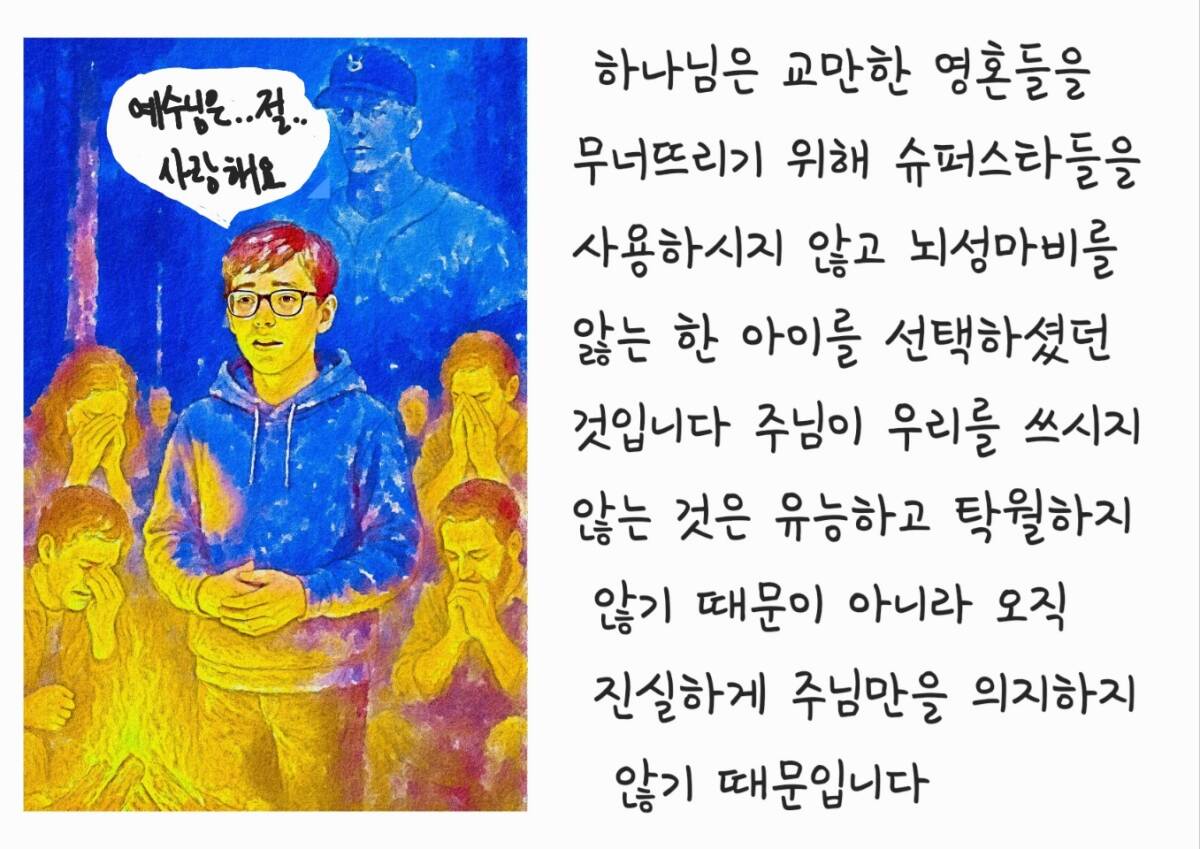 예수님은..절..
사랑해요
하나님은 교만한 영혼들을
무너뜨리기 위해 슈퍼스타들을
사용하시지 않고 뇌성마비를
앓는 한 아이를 선택하셨던
것입니다 주님이 우리를 쓰시지
않는 것은 유능하고 탁월하지
않기 때문이 아니라 오직
진실하게 주님만을 의지하지
않기 때문입니다